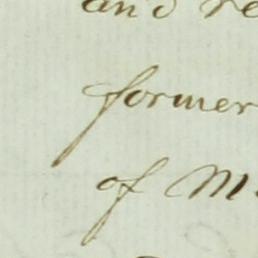 and re
former
of M.